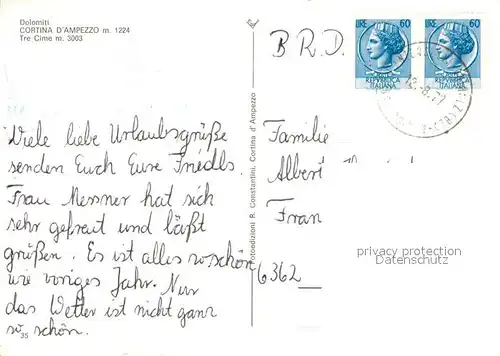 Dolomiti
CORTINA D'AMPEZZO m. 1224
Tre Cime m. 3003
LIRE 60
REPVBBLICA
ITALIANA
LIRE 60
REPVBBLICA
ITALIANA
12.8.77
B R D.
Viele liebe Urlaubsgrüße
senden Euch Eure Friedls.
Frau Messner hat sich
sehr gefreut und läßt
grüßen. Es ist alles so schön
wie voriges Jahr. Nur
das Wetter ist nicht ganz
so schön.
35
Fotoedizioni R. Constantini, Cortina d'Ampezzo
Familie
Albert
Fran
6362
privacy protection
Datenschutz